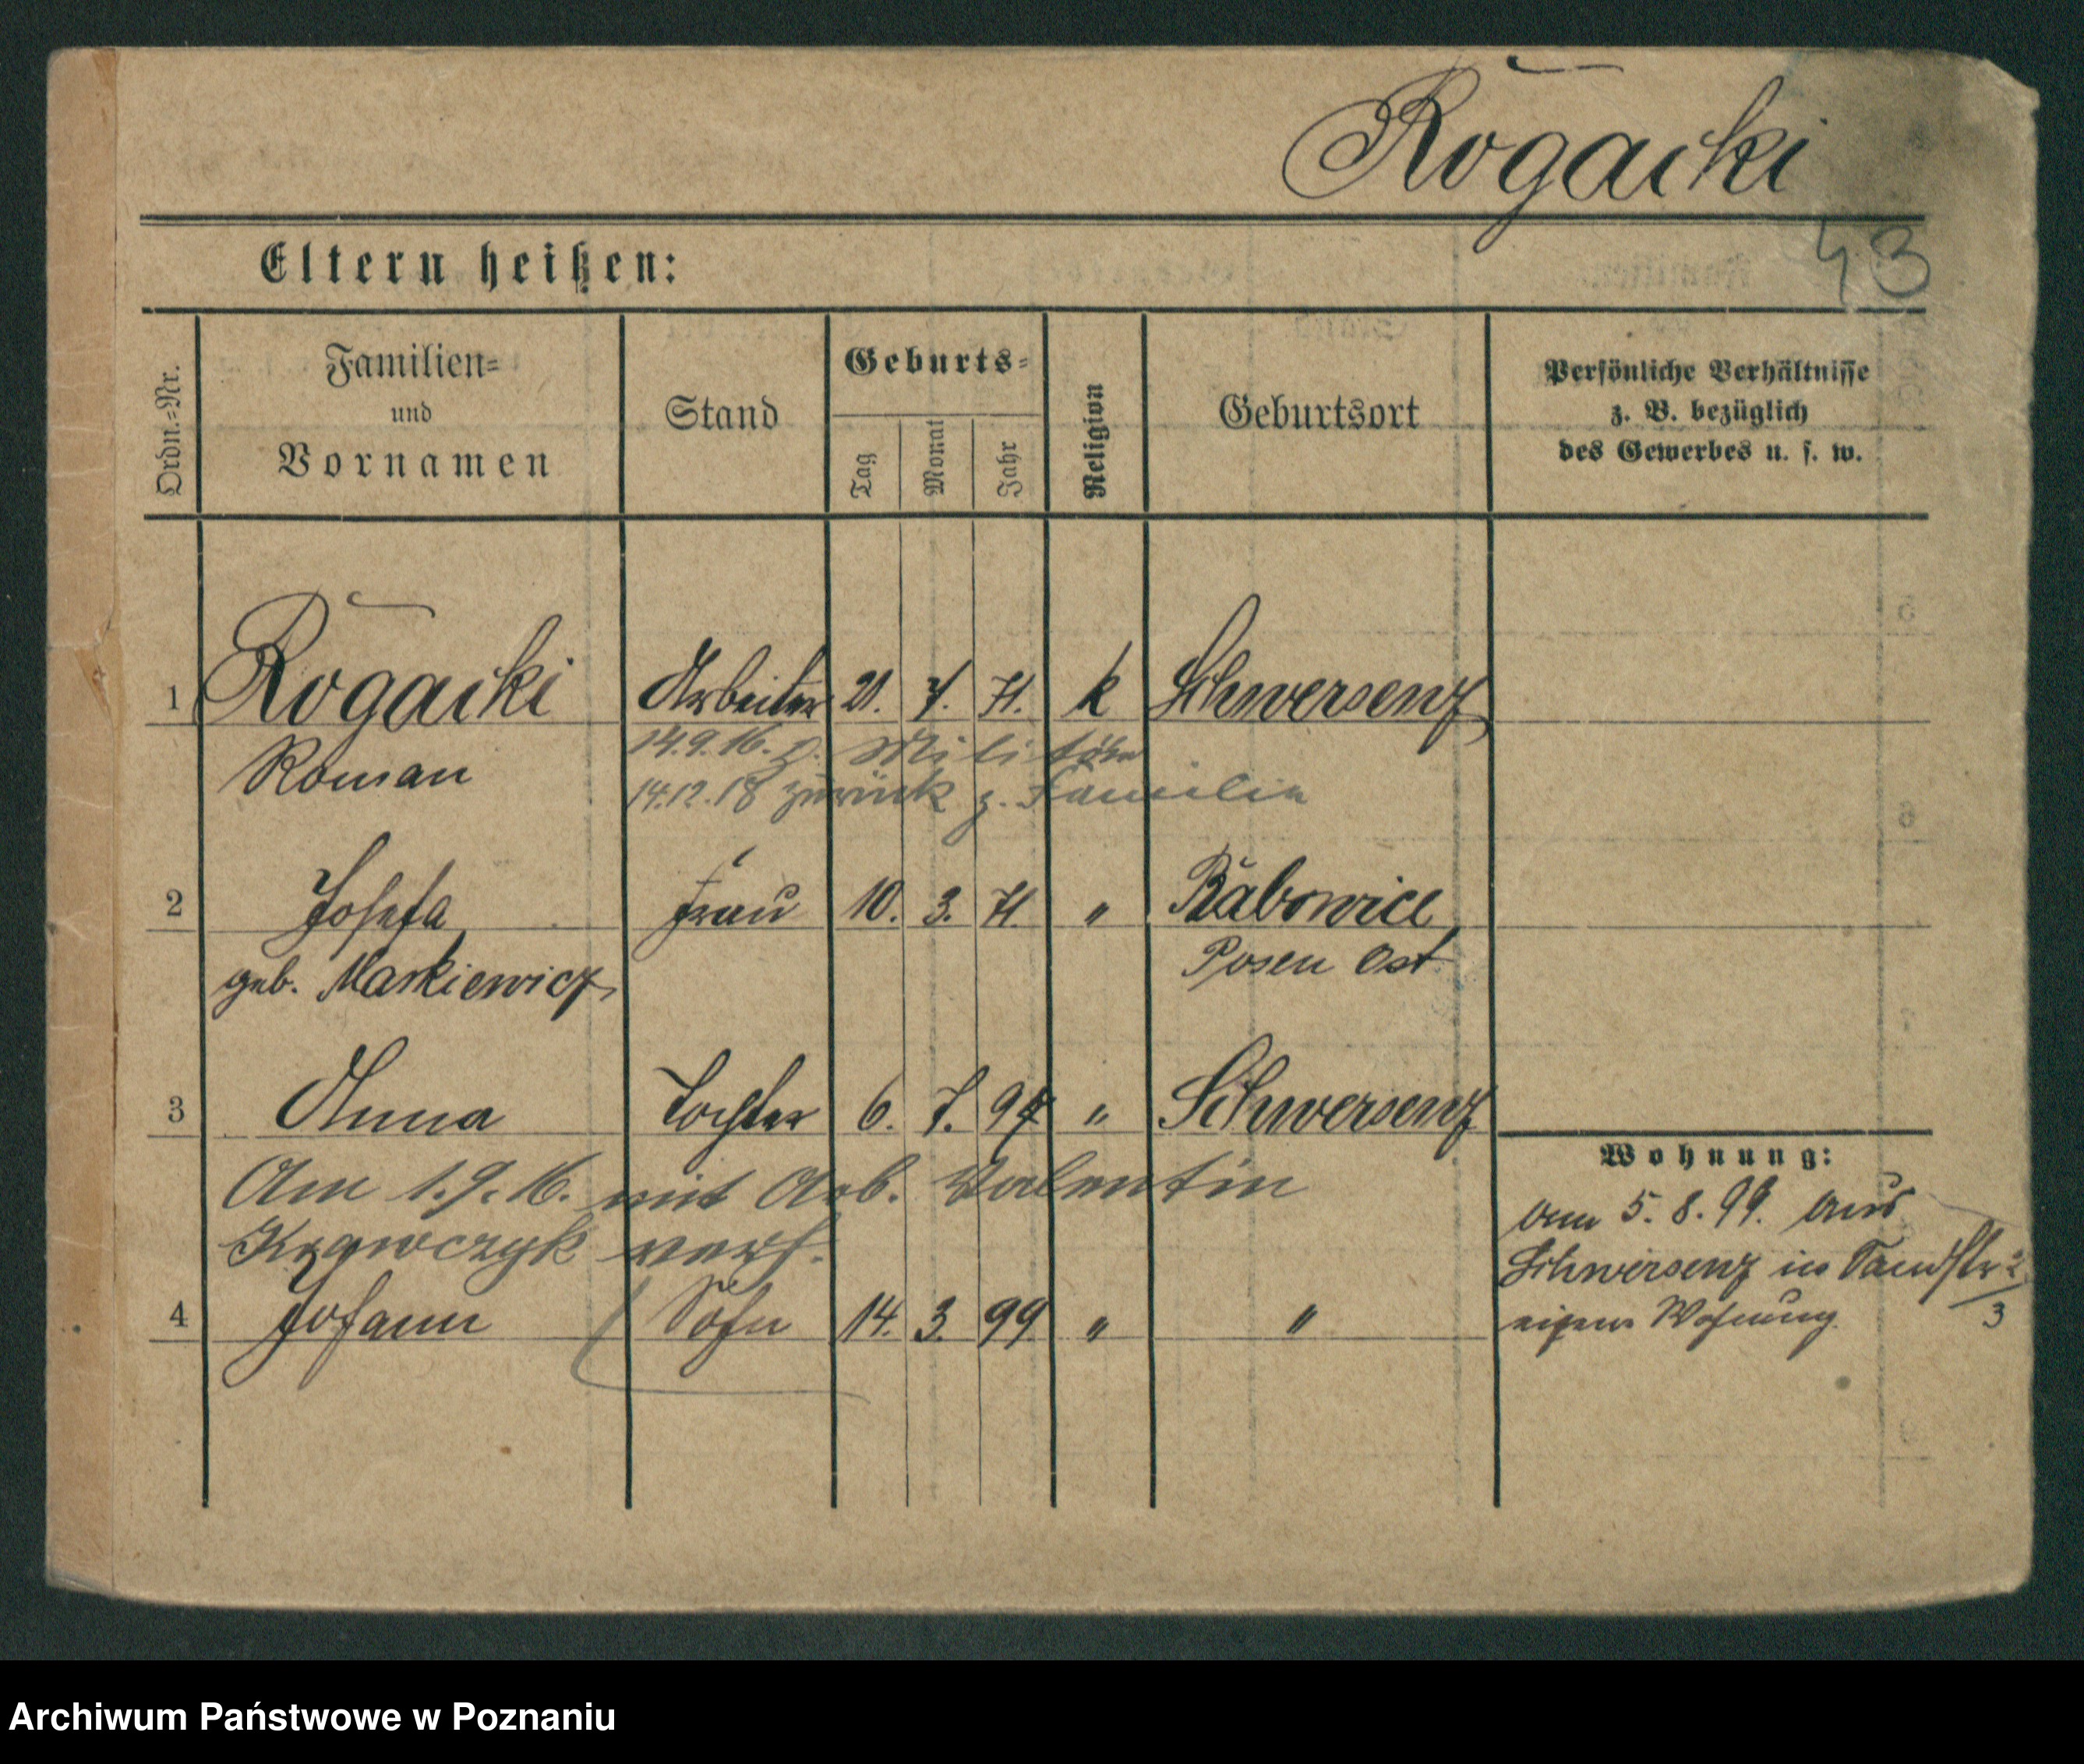 Rogacki
43
Eltern heißen:
Ordn.=Nr.
Familien=
und
Vornamen
Stand
Geburts=
Tag
Monat
Jahr
Religion
Geburtsort
Persönliche Verhältnisse
z. B. bezüglich
des Gewerbes u. s. w.
1 Rogacki Arbeiter 21. 7. 71. k Schwersenz
Roman
14.9.16. z. Militär
14.12.18 zurück z. Familie
2 Josefa Frau 10. 3. 71. " Rabowice
geb. Maskiewicz Posen Ost
3 Anna Tochter 6. 7. 97 " Schwersenz
Am 1.9.16. mit Arb. Valentin
Krawczyk verh.
4 Johann Sohn 14. 3. 99 " "
Wohnung:
am 5. 8. 99. aus
Schwersenz in
eigene Wohnung. 3
Archiwum Państwowe w Poznaniu